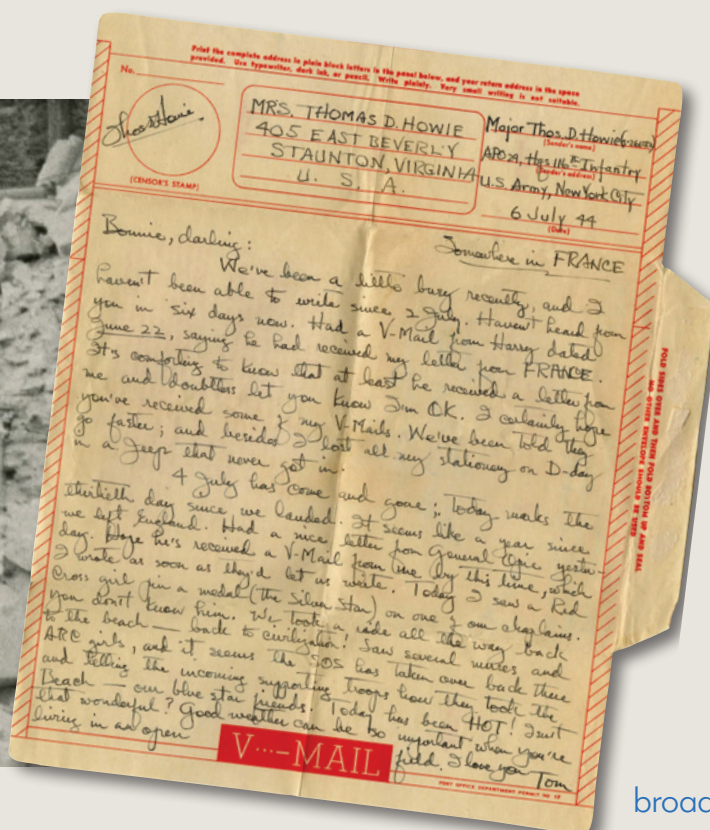 Print the complete address in plain block letters in the panel below, and your return address in the space
provided. Use typewriter, dark ink, or pencil. Write plainly. Very small writing is not suitable.
No.
Thos D Howie
(CENSOR'S STAMP)
MRS. THOMAS D. HOWIE
405 EAST BEVERLY
STAUNTON, VIRGINIA
U. S. A.
Major Thos. D. Howie
(Sender's name)
APO 29, Hqs 116th Infantry
(Sender's address)
U.S. Army, New York City
6 July 44
(Date)
Somewhere in FRANCE
Bonnie, darling:
We've been a little busy recently, and I
haven't been able to write since 2 July. Haven't heard from
you in six days now. Had a V-Mail from Harry dated
June 22, saying he had received my letter from FRANCE.
It's comforting to know that at least he received a letter from
me and doubtless let you know I'm OK. I certainly hope
you've received some of my V-Mails. We've been told they
go faster; and besides I lost all my stationery on D-day
in a jeep that never got in.
4 July has come and gone; Today marks the
thirtieth day since we landed. It seems like a year since
we left England. Had a nice letter from General yester
day. Hope he's received a V-Mail from me by this time, which
I wrote as soon as they'd let us write. Today I saw a Red
Cross girl pin a medal (the Silver Star) on one of our chaplains.
You don't know him. We took a ride all the way back
to the beach — back to civilization. Saw several nurses and
ARC girls, and it seems the SOS has taken over back there
and telling the incoming supporting troops how they took the
Beach — our blue star friends. Today has been HOT! Isn't
that wonderful? Good weather can be so important when you're
living in an open field. I love you Tom
V···–MAIL
POST OFFICE DEPARTMENT PERMIT NO.
FOLD SIDES OVER AND THEN FOLD BOTTOM UP AND SEAL
NO OTHER ENVELOPE SHOULD BE USED
broad